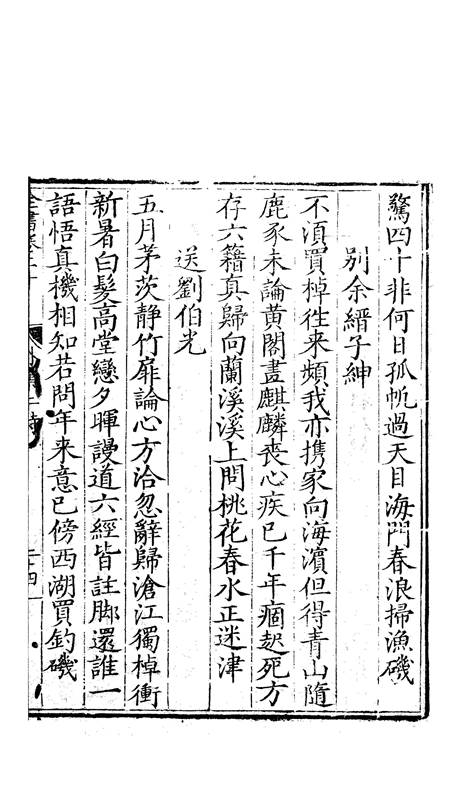 驚四十非何日孤帆過天目海門春浪掃漁磯
別余縉子紳
不湏買棹徃来頻我亦携家向海濵但得青山隨
鹿豕未論黄閣畫麒麟喪心疾已千年痼起死方
存六籍真歸向蘭溪溪上問桃花春水正迷津
送劉伯光
五月茅茨静竹扉論心方洽忽辭歸滄江獨棹衝
新暑白髮高堂戀夕暉謾道六經皆註脚還誰一
語悟真機相知若問年来意已傍西湖買釣磯